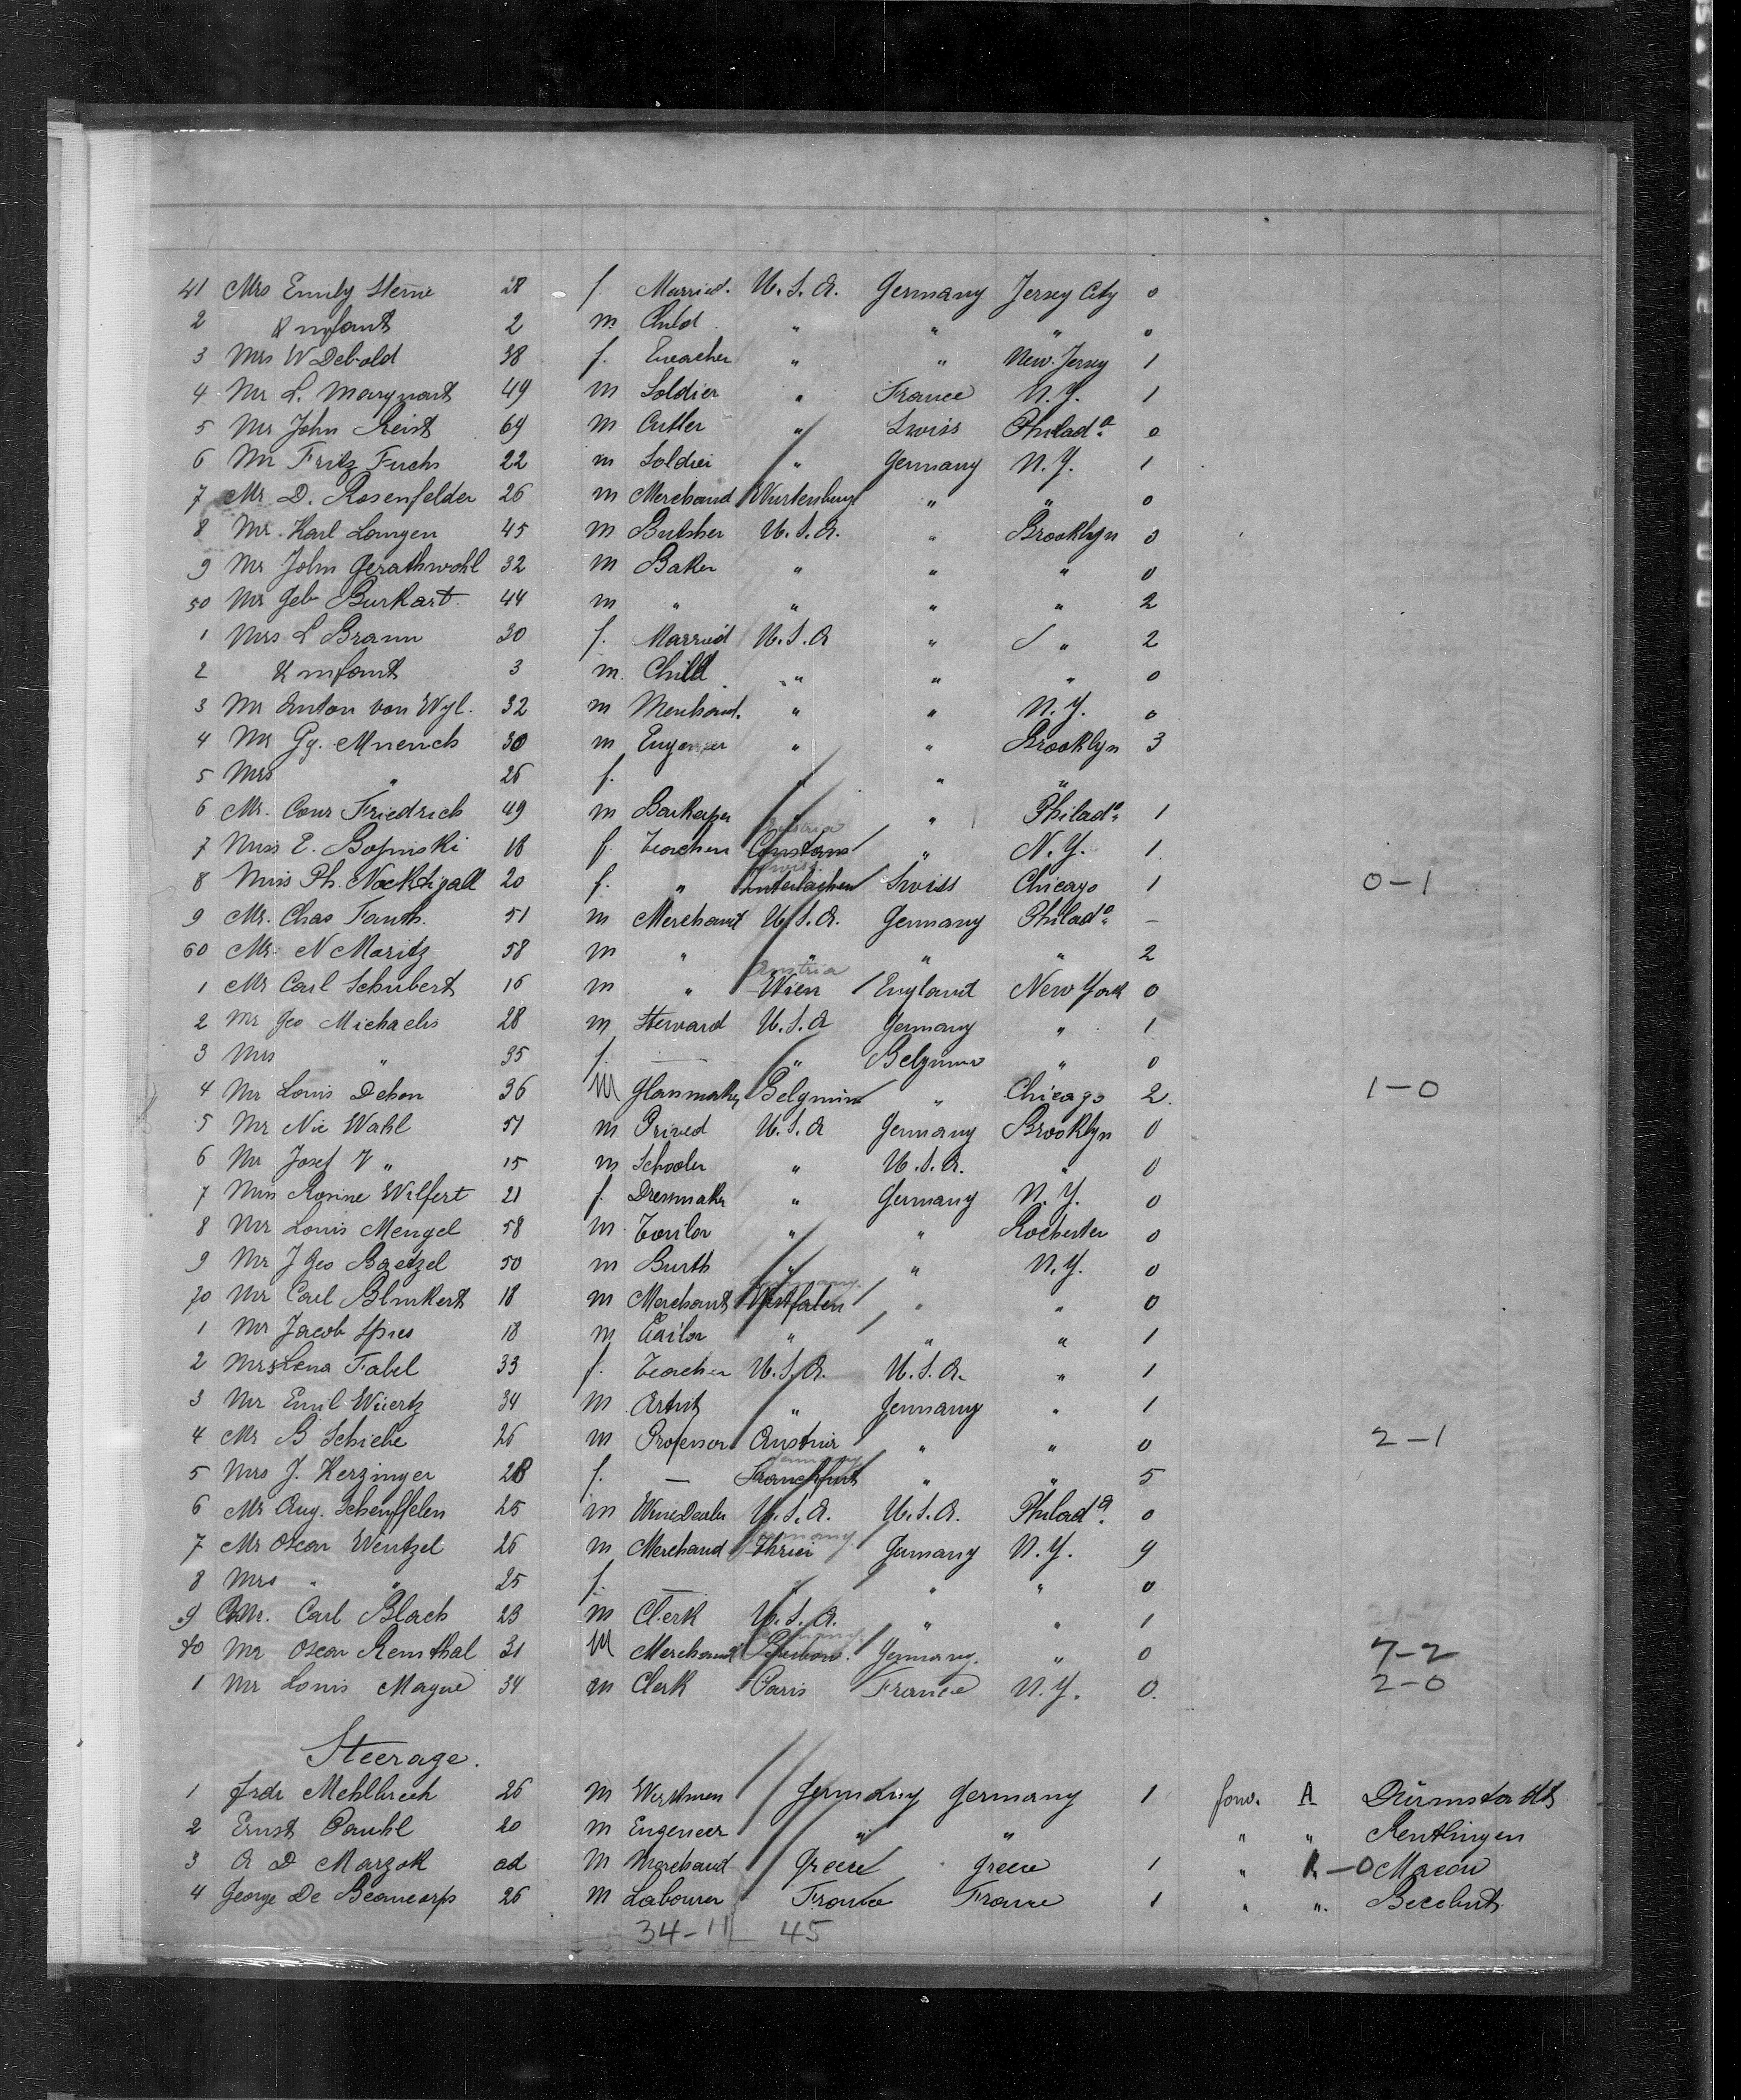 41 Mrs Emily Sterne 28 f. Married. U.S.A. Germany Jersey City 0
2 & infant 2 m. Child " " " 0
3 Mrs W Debold 38 f. " " New Jersey 1
4 Mr L. Marynart 49 m Soldier " France N.Y. 1
5 Mr John Reist 69 m Cutler " Swiss Philada. 0
6 Mr Fritz Fuchs 22 m Soldier " Germany N.Y. 1
7 Mr D. Rosenfelder 26 m Merchand Wurtenburg " " 0
8 Mr. Karl Langen 45 m Butsher U.S.A. " Brooklyn 0
9 Mr John Gerathwohl 32 m Baker " " " 0
50 Mr Geb Burkart. 44 m " " " " 2
1 Mrs L Braun 30 f. Married U.S.A " " 2
2 & infant 3 m. Child " " " 0
3 Mr Anton von Wyl. 32 m Merchand. " " N.Y. 0
4 Mr Gg. Muench 30 m " " Brooklyn 3
5 Mrs " 26 f. " " "
6 Mr. Conr Friedrich 49 m Barkeeper " Philada. 1
7 Miss E. 18 f. Teacher Austria Constans " N.Y. 1.
8 Miss Ph. Nacktigall 20 f. " Swiss Interlachen Swiss Chicago 1 0-1
9 Mr. Chas Fauth. 51 m Merchand U.S.A. Germany Philada. -
60 Mr. N Moritz 58 m " " " " 2
1 Mr Carl Schubert 16 m " Austria Wien England New York 0
2 Mr Geo Michaelis 28 m Steward U.S.A Germany " 1
3 Mrs " 35 f. — " Belgium " 0
4 Mr Louis Dehon 36 M Glasmaker Belgium " Chicago 2. 1-0
5 Mr Nic Wahl 51 m Prived U.S.A Germany Brooklyn 0
6 Mr Josef V " 15 m Schooler " U.S.A. " 0
7 Miss Rosine Wilfert 21 f. Dressmaker " Germany N.Y. 0
8 Mr Louis Mengel 58 m. Tailor " " Rochester 0
9 Mr J Geo Baetzel 50 m " " N.Y. 0
70 Mr Carl Blinkert 18 m Merchant Germany. Westfalen " " 0
1 Mr Jacob Spies 18 m Tailor " " " 1
2 Mrs Lena Fabel 33 f. Teacher U.S.A. U.S.A. " 1
3 Mr Emil Wiertz 34 m. Artist " Germany " 1
4 Mr B Schiele 26 m Professor Austrir " " 0 2-1
5 Mrs J. Herzinger 28 f. — Germany Franckfurt " " 5
6 Mr Aug. Scheuffelen 25 m WineDealer U.S.A. U.S.A. Philada. 0
7 Mr Oscar Wentzel 26 m Merchand Germany. Germany N.Y. 9
8 Mrs " " 25 f. — " " " 0
9 Mr. Carl Bloch 23 m Clerk U.S.A. " " 1
80 Mr Oscar Remthal 31 M Merchand Germany. Germany. " 0 7-2
1 Mr Louis Mayne 34 m Clerk Paris France N.Y. 0. 2-0
Steerage.
1 Frdr Mehlbrech 26 m Workmen Germany Germany 1 forw. A
2 Ernst Pauhl 20 m Engeneer " " " " Reutlingen
3 A D Marzok ad M Merchand Greece Greece 1 " 1-0 Macou
4 George De Beaucorps 26 m Labourer France France 1 " "
34-11 45